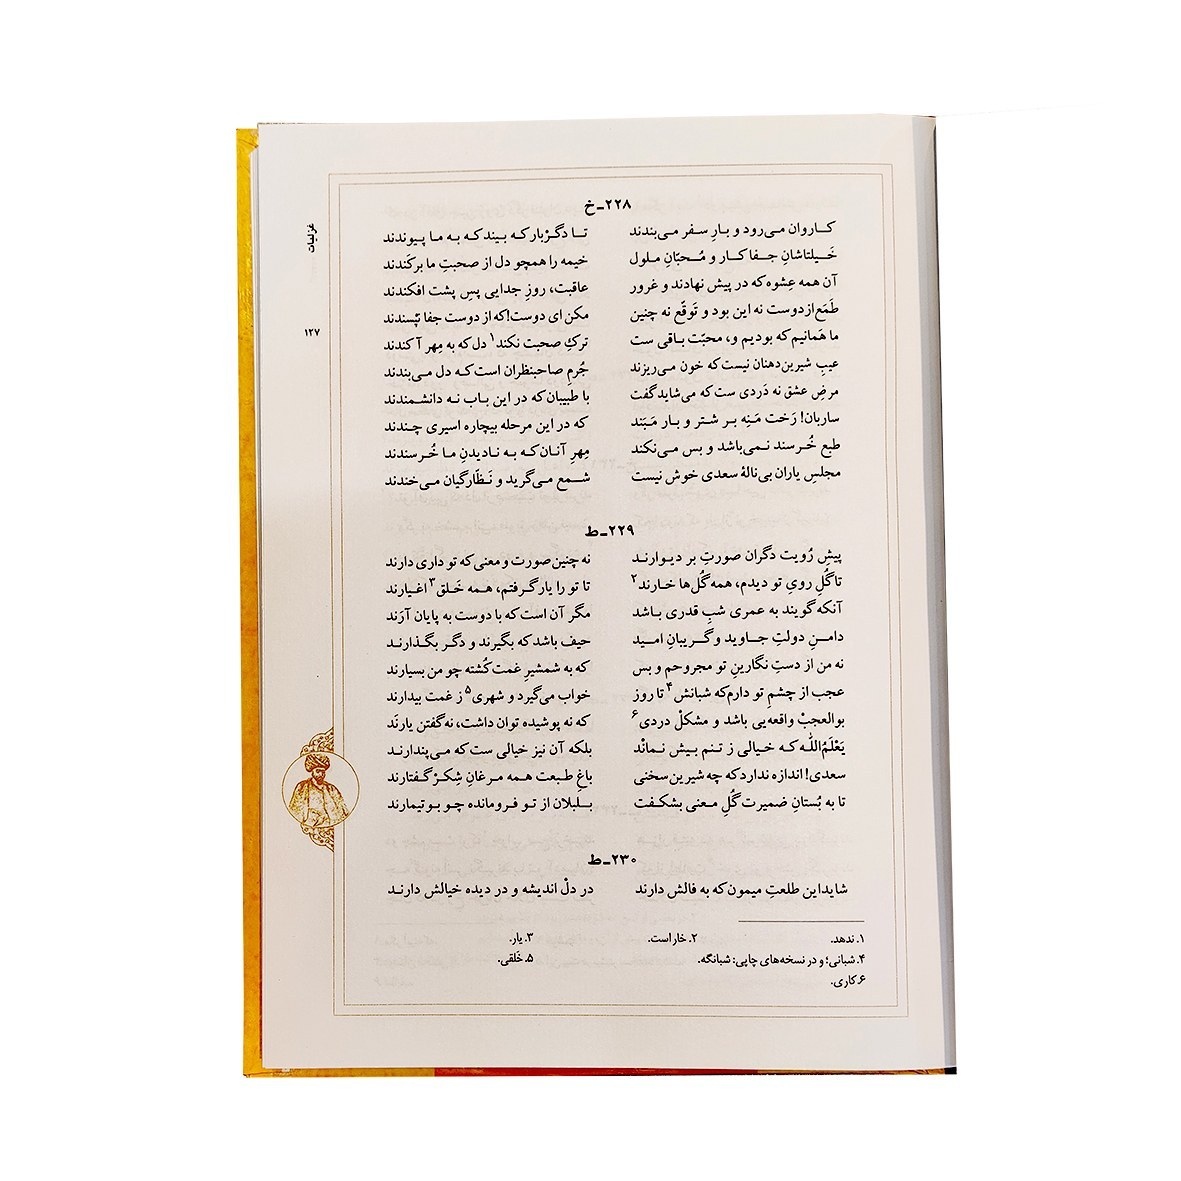 غزلیات
۱۲۷
۲۲۸ـ خ
کاروان می‌رود و بارِ سفر می‌بندند تا دگرْبار که بیند که به ما پیوندند
خَیلتاشانِ جفاکار و مُحبّانِ ملول خیمه را همچو دل از صحبتِ ما برکَندند
آن همه عِشوه که در پیش نهادند و غرور عاقبت، روزِ جدایی پسِ پشت افکندند
طَمَع از دوست نه این بود و تَوقّع نه چنین مکن ای دوست! که از دوست جفا نپْسندند
ما هَمانیم که بودیم و، محبّت باقی ست ترکِ صحبت نکند۱ دل که به مِهر آکندند
عیبِ شیرین‌دهنان نیست که خون می‌ریزند جُرمِ صاحبنظران است که دل می‌بندند
مرضِ عشق نه دَردی ست که می‌شاید گفت با طبیبان که در این باب نه دانشمندند
ساربان! رَخت مَنِه بر شتر و بار مَبَند که در این مرحله بیچاره اسیری چندند
طبع خُرسند نمی‌باشد و بس می‌نکند مِهرِ آنان که به نادیدنِ ما خُرسندند
مجلسِ یاران بی‌نالهٔ سعدی خوش نیست شمع می‌گرید و نَظّارگیان می‌خندند
۲۲۹ـ ط
پیشِ رُویت دگران صورتِ بر دیوارند نه چنین صورت و معنی که تو داری دارند
تا گُلِ رویِ تو دیدم، همه گُل‌ها خارند۲ تا تو را یار گرفتم، همه خَلق۳ اغیارند
آنکه گویند به عمری شبِ قدری باشد مگر آن است که با دوست به پایان آرَند
دامنِ دولتِ جاوید و گریبانِ امید حیف باشد که بگیرند و دگر بگذارند
نه من از دستِ نگارینِ تو مجروحم و بس که به شمشیرِ غمت کُشته چو من بسیارند
عجب از چشمِ تو دارم که شبانش۴ تا روز خواب می‌گیرد و شهری۵ ز غمت بیدارند
بوالعجبْ واقعه‌یی باشد و مشکلْ دردی۶ که نه پوشیده توان داشت، نه گفتن یارَند
یَعْلَمُ‌اللّٰه که خیالی ز تنم بیش نمانْد بلکه آن نیز خیالی ست که می‌پندارند
سعدی! اندازه ندارد که چه شیرین‌سخنی باغِ طبعت همه مرغانِ شِکرْ گفتارند
تا به بُستانِ ضمیرت گُلِ معنی بشکفت بلبلان از تو فرومانده چو بوتیمارند
۲۳۰ـ ط
شاید این طلعتِ میمون که به فالش دارند در دلْ اندیشه و در دیده خیالش دارند
۱. ندهد. ۲. خار است. ۳. یار.
۴. شبانی؛ و در نسخه‌های چاپی: شبانگه. ۵. خَلقی.
۶. کاری.